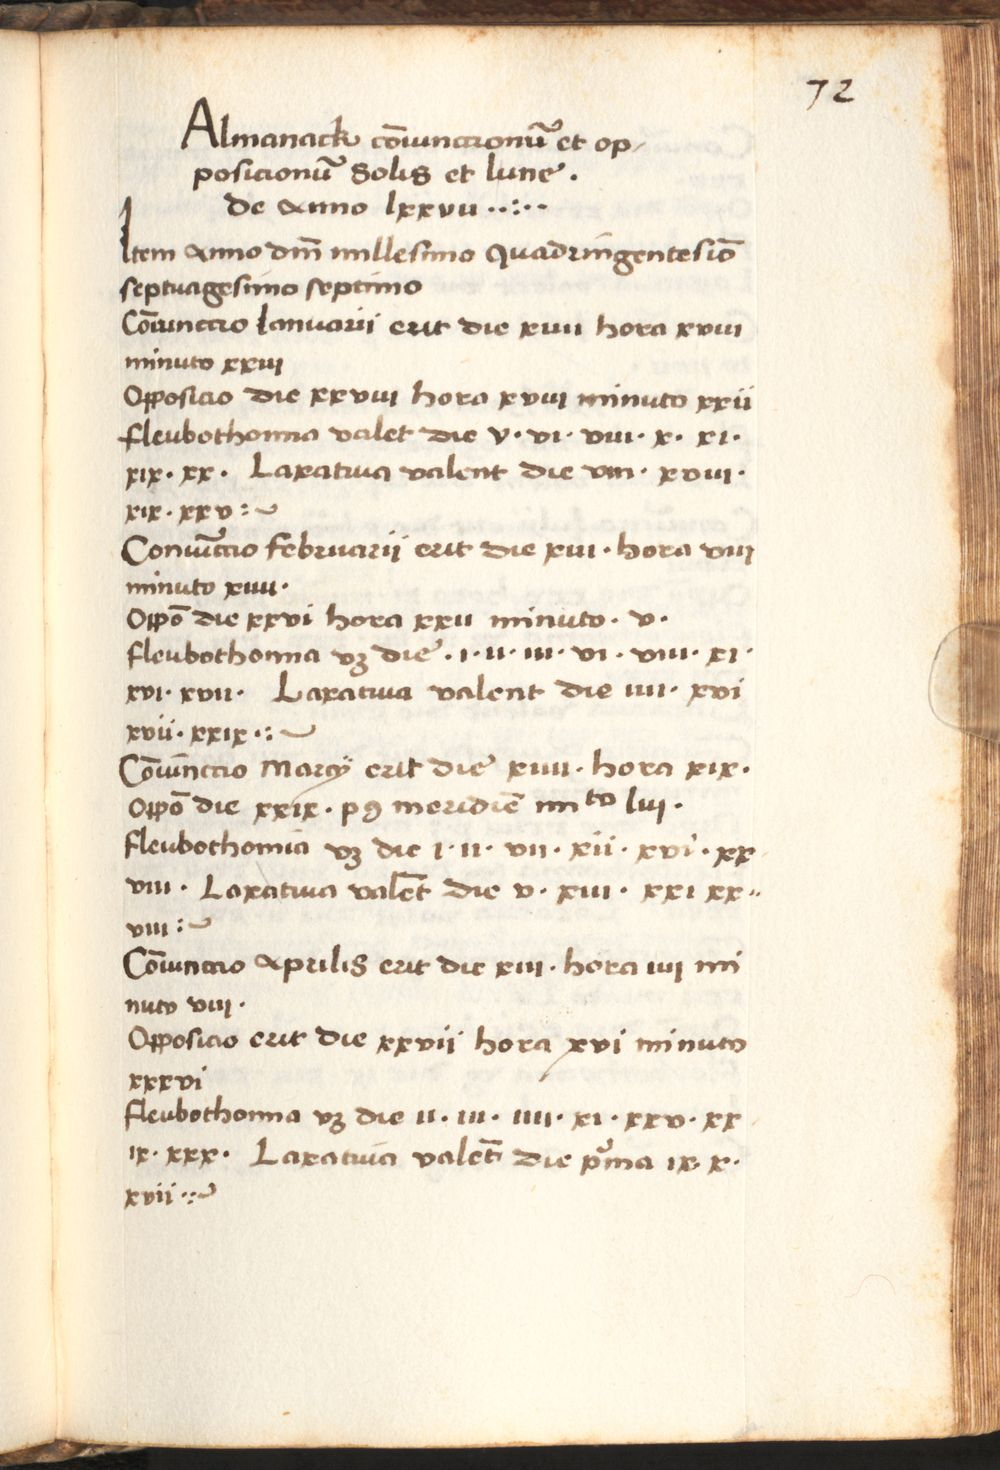 72
Almanack cōiunctionū et op-
posicionū Solis et lune.
de Anno lxxvii ..:..
Item Anno dn̄i millesimo Quadringentesīo
septuagesimo septimo
Cōiunctio Ianuarii erit die xiiii hora xviii
minuto xxiii
Opposicio die xxviii hora xviii minuto xxii
fleubothomia valet die v. vi. viii. x. xi.
xix. xx. Laxativa valent die viii. xviii.
xix. xxv :~
Coniūctio februarii erit die xiii. hora viii
minuto xiiii.
Oppō die xxvi hora xxii minuto. v.
fleubothomia vꝫ die. i. ii. iii. vi. viii. xi.
xvi. xvii. Laxativa valent die iiii. xvi
xvii. xxix.:~
Cōiūnctio Marcij erit die xiiii. hora xix.
Oppō die xxix. pꝰ meridiē miᵗᵒ liii.
fleubothomia vꝫ die i. ii. vii. xii. xvi. xx
viii. Laxativa valēt die v. xiii. xxi xx=
viii :~
Cōiunctio Aprilis erit die xiii. hora iiii mi
nuto viii.
Opposicio erit die xxvii hora xvi minuto
xxxvi
fleubothomia vꝫ die ii. iii. iiii. xi. xxv. xx
ix. xxx. Laxativa valēt die pͥma ix. x.
xvii.:~